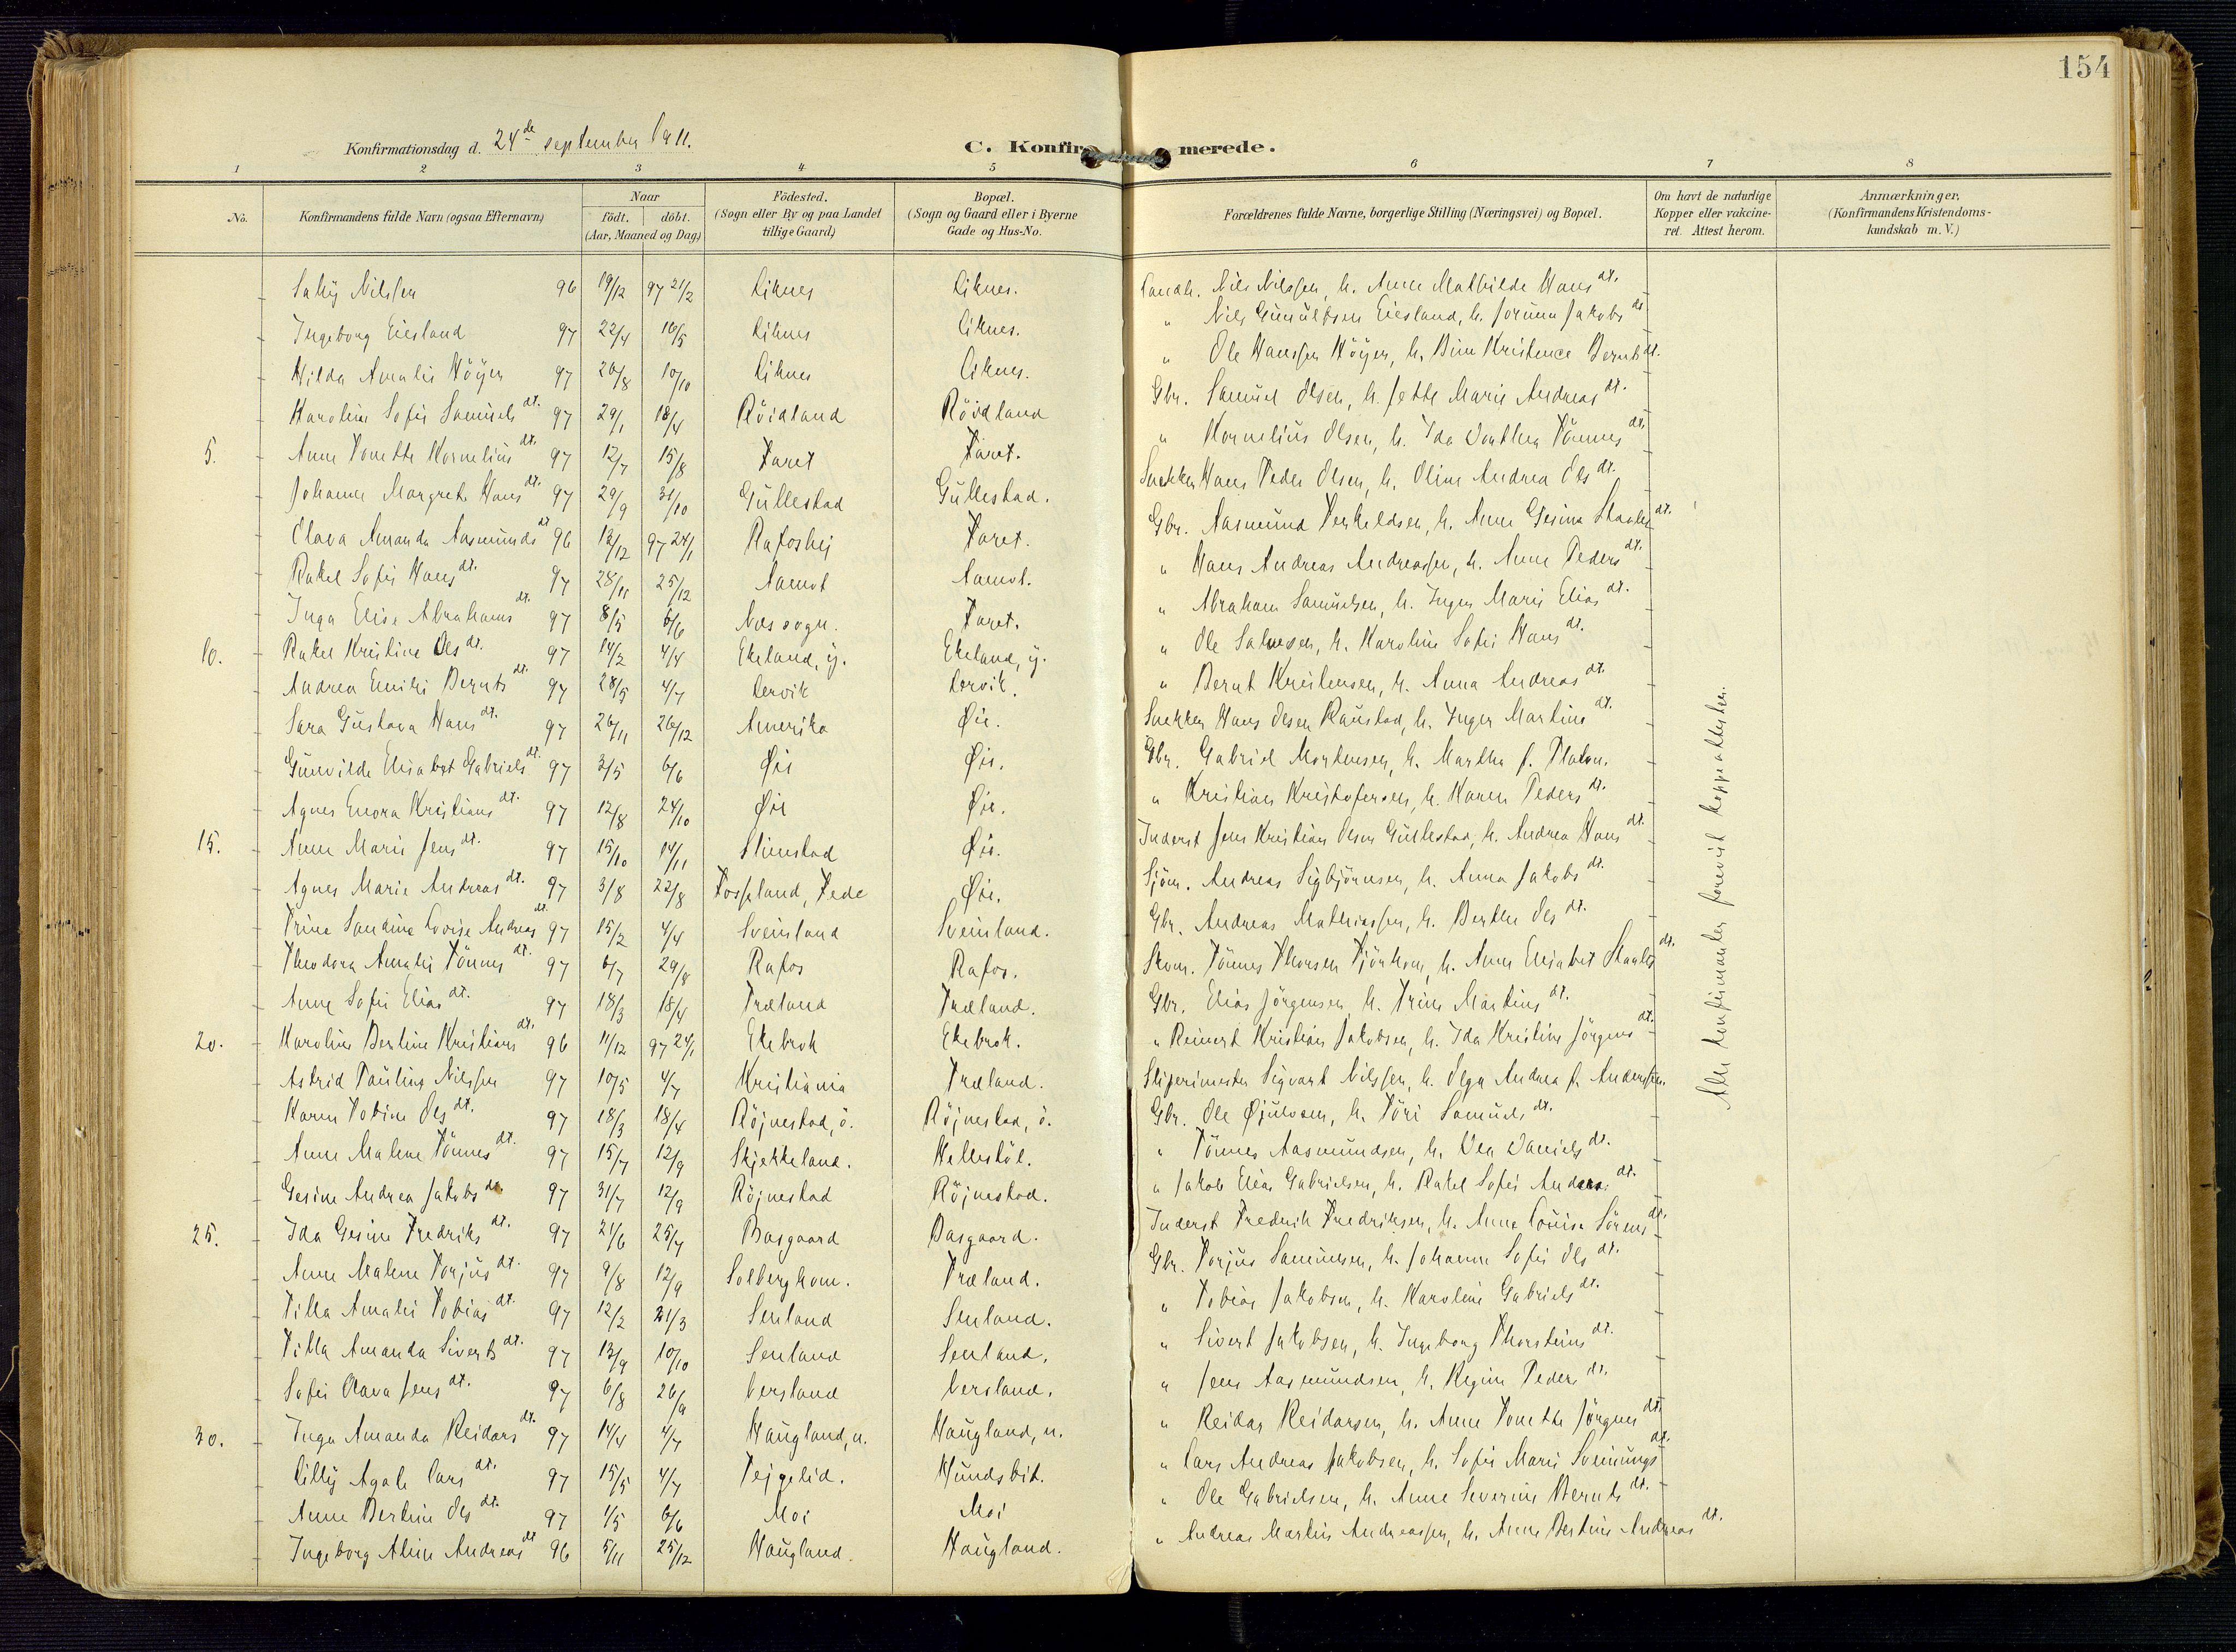 154
Konfirmationsdag d. 24de september 1911.
C. Konfirmerede.
1 2 3 4 5 6 7 8
No. Konfirmandens fulde Navn (ogsaa Efternavn) Naar födt. döbt. (Aar, Maaned og Dag) Födested. (Sogn eller By og paa Landet tillige Gaard) Bopæl. (Sogn og Gaard eller i Byerne Gade og Hus-No. Forældrenes fulde Navne, borgerlige Stilling (Næringsvei) og Bopæl. Om havt de naturlige Kopper eller vakcineret. Attest herom. Anmærkninger, (Konfirmandens Kristendomskundskab m. V.)
Nilssen 96 19/12 97 21/2 Liknes Liknes. Nils Nilssen, h. Anne Mathilde Hans dt.
Ingeborg Eiesland 97 22/4 16/5 Liknes Liknes. " Nils Eiesland, h. Jorunn Jakobs dt
Hilda Amalie Höyer 97 26/8 10/10 Liknes Liknes. " Ole Hanssen Höyer, h. Kristence Bernts dt.
Karoline Sofie Samuels dt. 97 29/1 18/4 Röidland Röidland Gbr. Samuel Olsen, h. Jette Marie Andreas dt.
5. Anne Tonette Kornelius dt. 97 12/7 15/8 Faret Faret. " Kornelius Olsen, h. Ida Dorthea Tönnes dt.
Johanne Margrete Hans dt. 97 29/9 31/10 Gullestad Gullestad. Snekker Hans Peder Olsen, h. Oline Andrea Ols dt.
Olava Amanda Aasmunds dt 96 12/12 97 24/1 Rafoshej Faret. Gbr. Aasmund Terkeldsen, h. Anne Gesine dt.
Rakel Sofie Hans dt. 97 28/11 25/12 Aamot Aamot. " Hans Andreas Andreassen, h. Anne Peders dt.
Inga Elise Abrahams dt. 97 8/5 6/6 Nes sogn. Faret. " Abraham Samuelsen, h. Inger Marie Elias dt.
10. Rakel Kristine Ols dt. 97 14/2 4/4 Ekeland, y. Ekeland, y. " Ole Salvesen, h. Karoline Sofie Hans dt.
Andrea Emilie Bernts dt. 97 28/5 4/7 Lervik Lervik. " Bernt Kristensen, h. Anna Andreas dt.
Sara Gustava Hans dt. 97 26/11 26/12 Amerika Øie. Snekker Hans Olsen Raustad, h. Inger Martine dt.
Gunvilde Elisabet Gabriels dt. 97 3/5 6/6 Øie Øie. Gbr. Gabriel Mortensen, h. Martha f. Platou.
Agnes Enora Kristians dt. 97 12/8 24/10 Øie Øie. " Kristian Kristofersen, h. Karen Peders dt.
15. Anne Marie Jens dt. 97 15/10 14/11 Slimstad Øie. Inderst Jens Kristian Olsen Gullestad, h. Andrea Hans dt.
Agnes Marie Andreas dt. 97 3/8 22/8 Fosseland, Fede Øie. Sjöm. Andreas Sigbjörnsen, h. Anna Jakobs dt.
Trine Sandine Lovise Andreas dt. 97 15/2 4/4 Sveinsland Sveinsland. Gbr. Andreas Mathiassen, h. Berthe Ols dt.
Theodora Amalie Tönnes dt. 97 6/7 29/8 Rafos Rafos. Skom. Tönnes Thorsen Tjörhom, h. Anne Elisabet dt.
Anne Sofie Elias dt. 97 18/3 18/4 Træland Træland. Gbr. Elias Jörgensen, h. Trine Martins dt.
20. Karoline Bertine Kristians dt. 96 11/12 97 24/1 Ekebrok Ekebrok. " Reinert Kristian Jakobsen, h. Ida Kristine Jörgens dt.
Astrid Pauline Nilssen 97 10/5 4/7 Kristiania Træland. Sliperimester Sigvart Nilssen, h. Olga Andrea f. Anderssen.
Karen Tobine Ols dt. 97 18/3 18/4 Röjnestad, ö. Röjnestad, ö. Gbr. Ole Øjulvsen, h. Töri Samuels dt.
Anne Malene Tönnes dt. 97 15/7 12/9 Skjekkeland. Helleståt. " Tönnes Aasmundsen, h. Daniels dt.
Gesine Andrea Jakobs dt. 97 31/7 12/9 Röjnestad Röjnestad. " Jakob Elias Gabrielsen, h. Rakel Sofie Anders dt.
25. Ida Gesine Fredriks dt. 97 21/6 25/7 Basgaard Basgaard. Inderst Fredrik Fredriksen, h. Anne Louise Sörens dt.
Anne Malene Torjus dt. 97 9/8 12/9 Solberghom. Træland. Gbr. Torjus Samuelsen, h. Johanne Sofie Ols dt.
Tilla Amalie Tobias dt. 97 12/2 21/3 Senland Senland. " Tobias Jakobsen, h. Karoline Gabriels dt.
Tilla Amanda Siverts dt. 97 13/9 10/10 Senland Senland. " Sivert Jakobsen, h. Ingeborg Thorsteins dt.
Sofie Olava Jens dt. 97 6/8 26/9 Versland Versland. " Jens Aasmundsen, h. Regine Peders dt.
30. Inga Amanda Reidars dt. 97 14/4 4/7 Haugland, n. Haugland, n. " Reidar Reidarsen, h. Anne Tonette Jörgens dt.
Lilly Agate Lars dt. 97 15/5 4/7 Tejgelid. Hundsbit. " Lars Andreas Jakobsen, h. Sofie Marie Sveinungs dt.
Anne Bertine Ols dt. 97 1/5 6/6 Moi Moi " Ole Gabrielsen, h. Anne Severine Bernts dt.
Ingeborg Aline Andreas dt 96 5/11 25/12 Haugland. Haugland. " Andreas Martin Andreassen, h. Anne Bertine Andreas dt.
Alle konfirmanter forevist koppeattester.